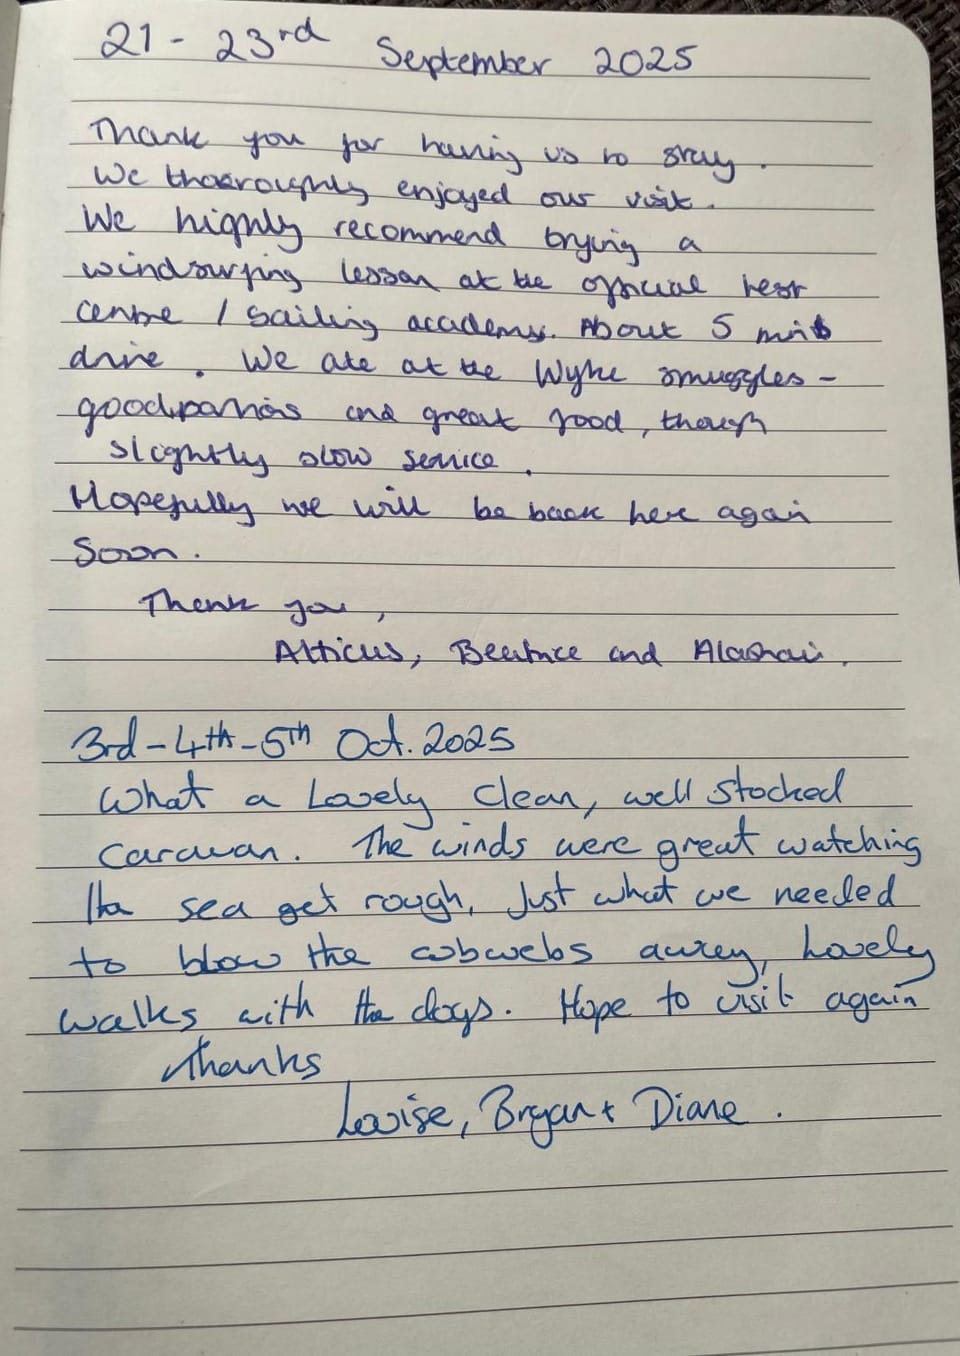 21 - 23rd September 2025
Thank you for having us to stay.
We thoroughly enjoyed our visit.
We highly recommend trying a
windsurfing lesson at the official test
centre / sailing academy. About 5 mins
drive. We ate at the Wyke smuggles -
good and great food, though
slightly slow service.
Hopefully we will be back here again
soon.
Thank you,
Atticus, Beatrice and Alastair.
3rd - 4th - 5th Oct. 2025
What a Lovely Clean, well stocked
caravan. The winds were great watching
the sea get rough, Just what we needed
to blow the cobwebs away, Lovely
walks with the dogs. Hope to visit again
Thanks
Louise, Bryan + Diane.